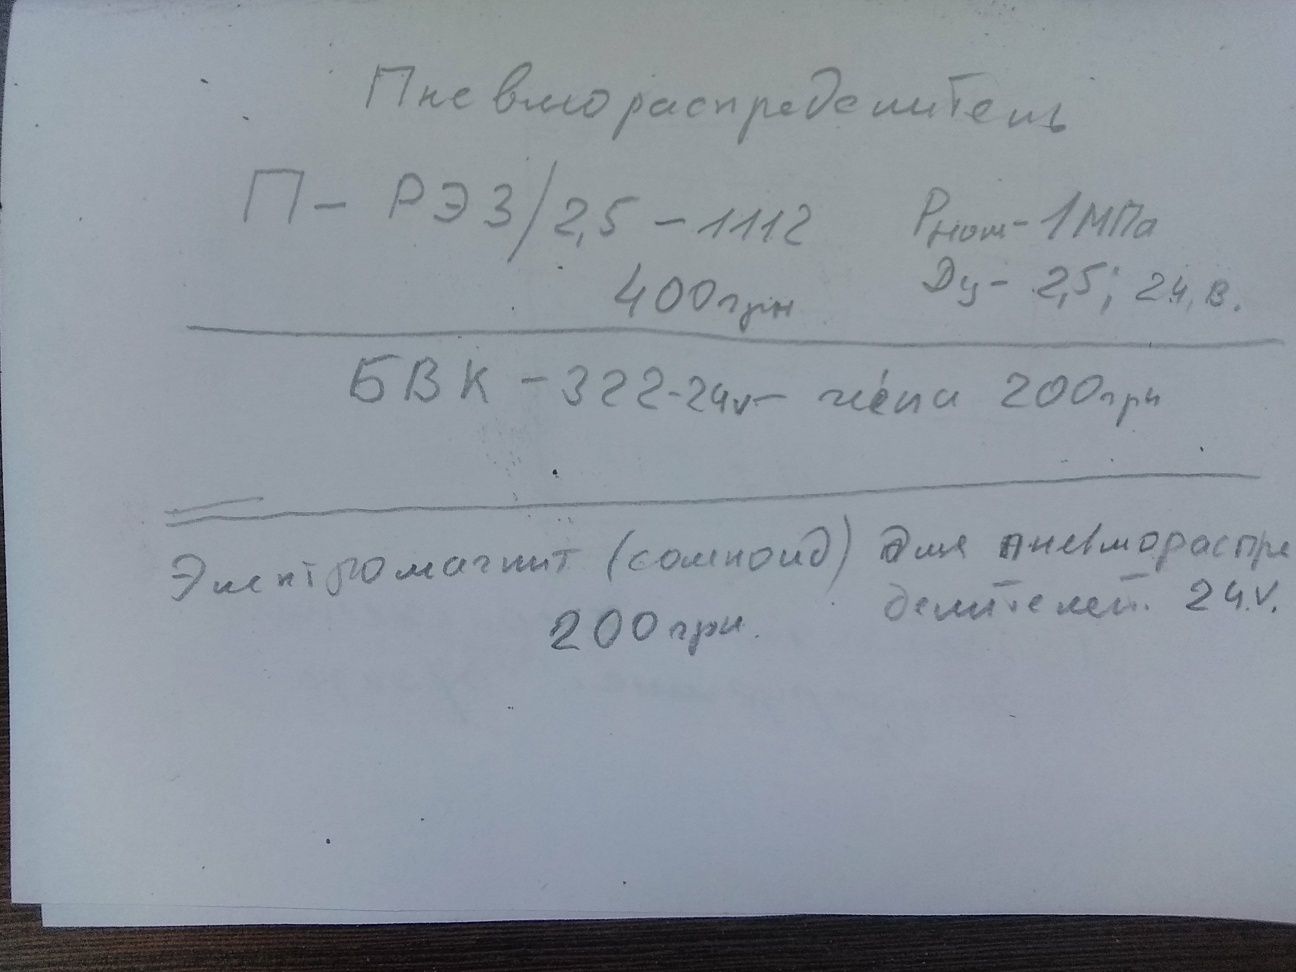 Пневмораспределитель
П- РЭ3/2,5 - 1112 Рном- 1МПа
400грн Ду- 2,5; 24.В.
БВК - 322-24v- цена 200грн
Электромагнит (соленоид) для пневмораспре
делителей. 24.V.
200грн.